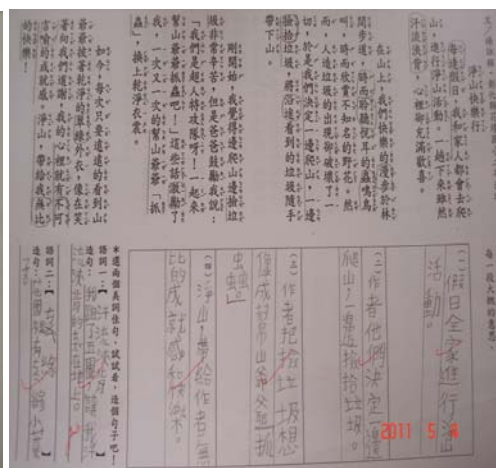 淨山快樂行
每逢假日，我和家人都會去爬
山，進行淨山活動。一趟下來雖然
汗流浹背，心裡卻充滿歡喜。
在山上，我們快樂的漫步於林
間步道，時而聆聽悅耳的蟲鳴鳥
叫，時而欣賞不知名的野花。然
而，人造垃圾的出現卻破壞了一
切，於是我們決定一邊爬山，一邊
撿拾垃圾，將沿途看到的垃圾隨手
帶下山。
剛開始，我覺得邊爬山邊撿垃
圾非常辛苦，但是爸爸鼓勵我說：
「我們是超人特攻隊呀！一起來
幫山爺爺抓蟲吧！」這些話激勵了
我，一次又一次的幫山爺爺「抓
蟲」，換上乾淨衣裳。
如今，每次只要遠遠的看到山
爺爺披著乾淨的翠綠外衣，像在笑
著向我們道謝，我的心裡就有不可
言喻的成就感。淨山，帶給我無比
的快樂！
每一段大樣的意思。
(一)假日全家進行淨山
活動。
(二)作者他們決定一邊
爬山，一邊撿拾垃圾。
(三)作者把撿垃圾想
像成幫山爺爺抓
蟲蟲。
(四)淨山，帶給作者無
比的成就感和快樂。
＊選兩個美詞佳句，試試看，造個句子吧！
語詞一：【汗流浹背】
造句：
語詞二：【翠綠】
造句：
2011 5 4